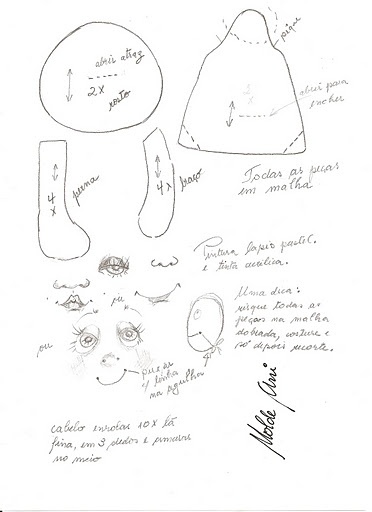 abrir atraz
2x
rosto
pique
abrir para
encher
Todas as peças
em malha
4
x
perna
4
x
braço
Pintura lapis pastel.
e tinta acrilica.
ou
ou
Uma dica:
risque todas as
peças na malha
dobrada, costure e
só depois recorte.
puxar
c/ linha
na agulha
Molde Ani
cabelo enrolar 10x lã
fina, em 3 dedos e amarrar
no meio